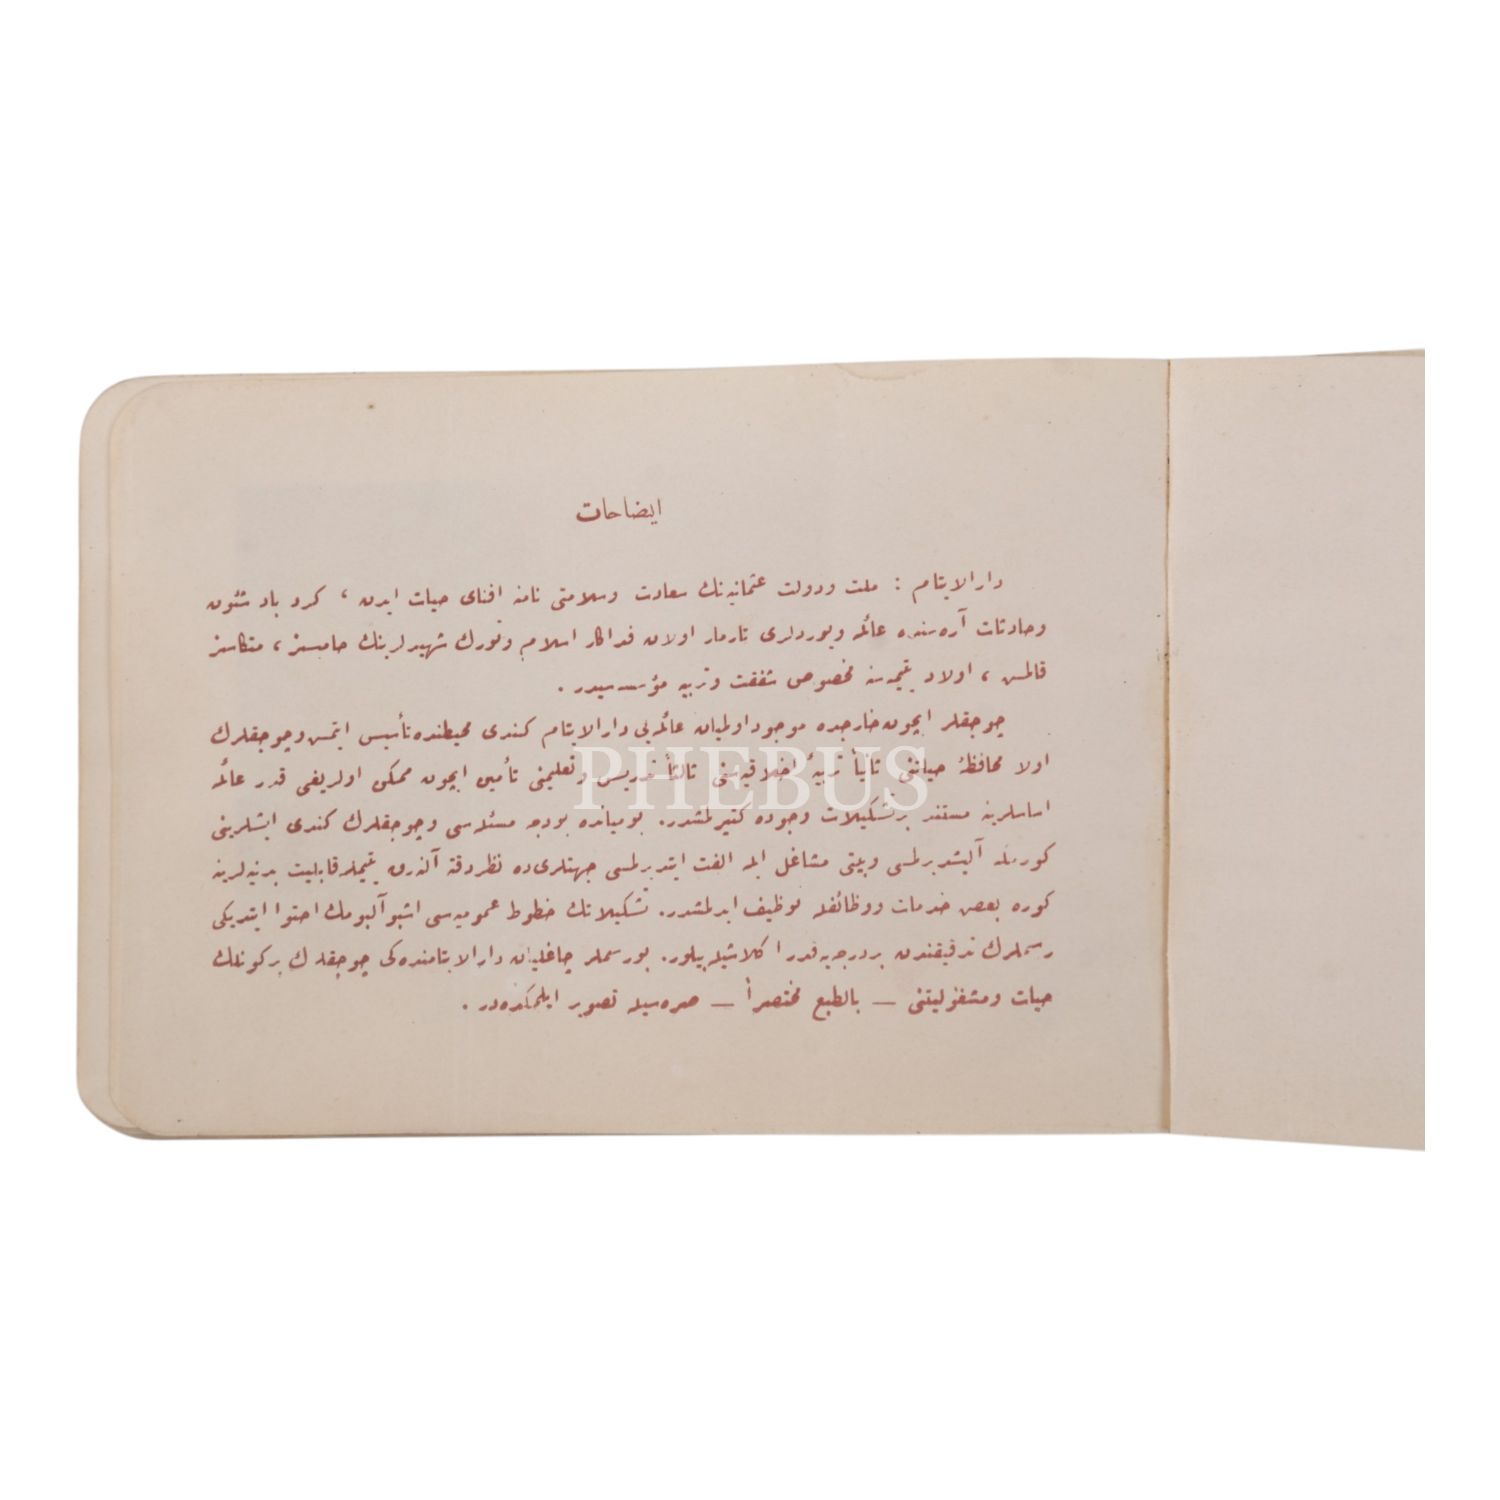 ايضاحات
دارالايتام : ملت ودولت عثمانيه‌نك سعادت وسلامتى نامنه افناى حيات ايدن ، كرد باد شئون
وحادثات آره‌سنده عائله ويوردلرى تارمار اولان فداكار اسلام وتورك شهيدلرينك حاميسز ، متكاسز
قالمش ، اولاد يتيمه‌سنه مخصوص شفقت وتربيه مؤسسه‌سيدر .
چوجقلر ايچون خارجده موجود اولميان عائله‌يى دارالايتام كندى محيطنده تأسيس ايتمش وچوجقلرك
اولا محافظهٔ حياتنى ثانياً تربيهٔ اخلاقيه‌سنى ثالثاً تدريس وتعليمنى تأمين ايچون ممكن اولديغى قدر عائله
اساسلرينه مستند بر تشكيلات وجوده كتيرلمشدر. بوميانده بودجه مسئله‌سى وچوجقلرك كندى ايشلرينى
كورمكه آليشديرلمسى وبيتى مشاغل ايله الفت ايتديرلمسى جهتلرى‌ده نظردقته آلنه‌رق يتيملر قابليت بدنيه‌لرينه
كوره بعض خدمات ووظائفله توظيف ايدلمشدر. تشكيلاتك خطوط عموميه‌سى اشبو آلبومك احتوا ايتديكى
رسملرك تدقيقندن بردرجه‌يه قدر اكلاشيله‌بيلور. بورسملر چاغليان دارالايتامنده‌كى چوجقلرك بركونلك
حيات ومشغوليتنى — بالطبع مختصراً — صره‌سيله تصوير ايلمكده‌در .
PHEBUS